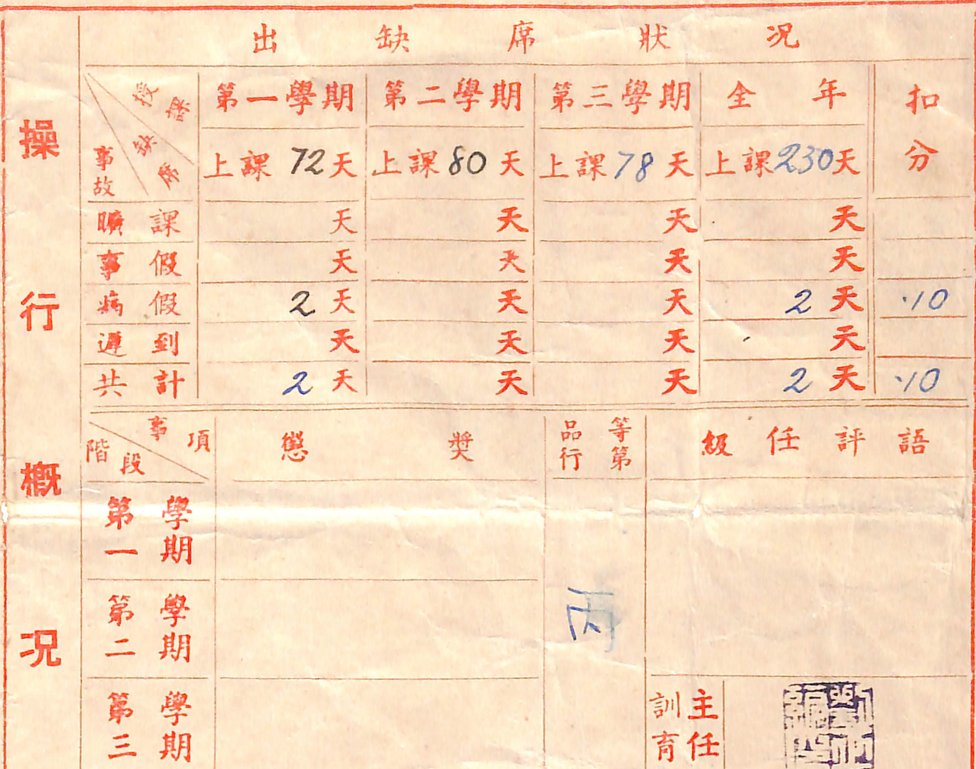 操行概況
出缺席狀況
授課 缺席 事故 第一學期 第二學期 第三學期 全年 扣分
上課72天 上課80天 上課78天 上課230天
曠課 天 天 天 天
事假 天 天 天 天
病假 2天 天 天 2天 .10
遲到 天 天 天 天
共計 2天 天 天 2天 .10
事項 階段 懲獎 品行等第 級任評語
第一學期
第二學期 丙
第三學期 訓育主任